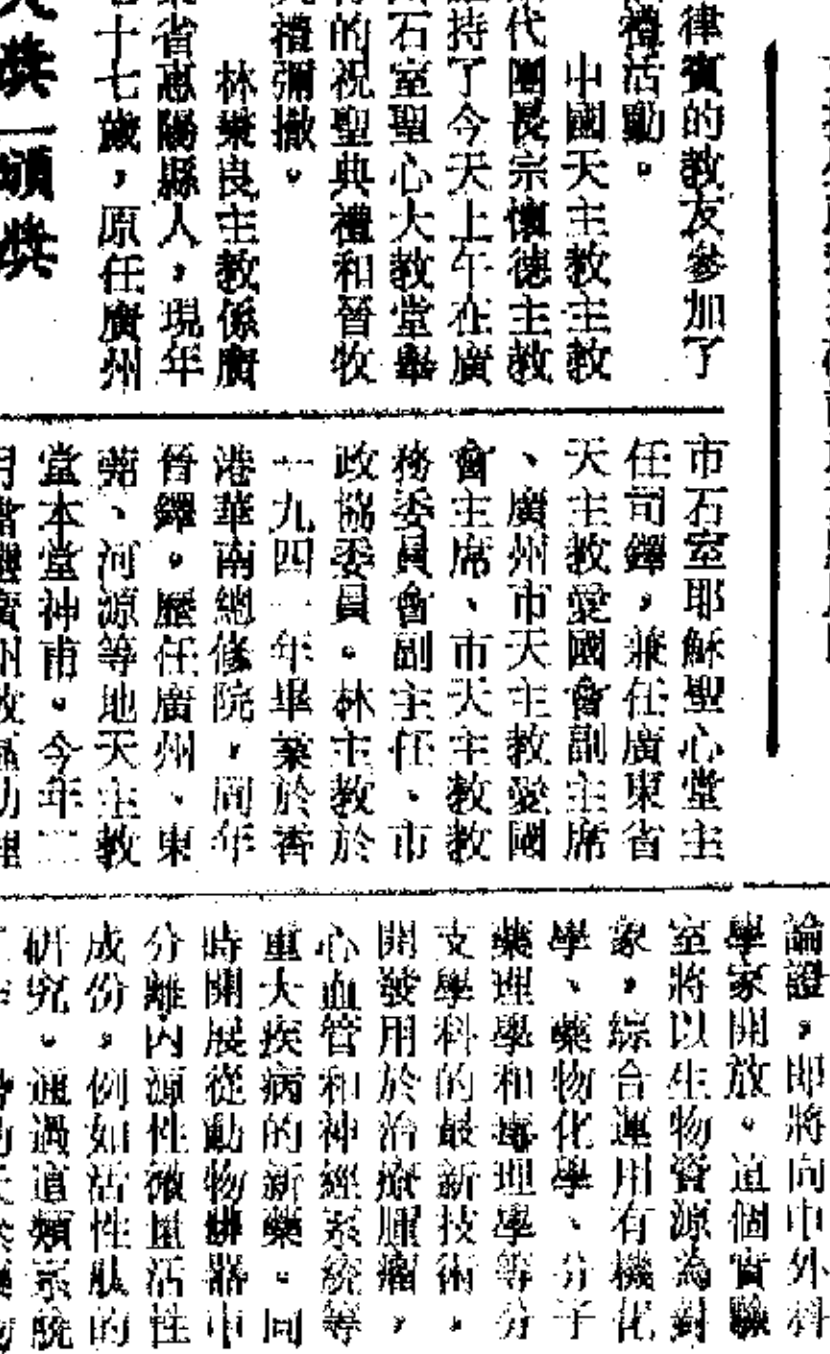 律賓的教友參加了
禮活動。
中國天主教主教
代團長宗懷德主教
持了今天上午在廣
石室聖心大教堂舉
的祝聖典禮和晉牧
禮彌撒。
林秉良主教係廣
省惠陽縣人,現年
十七歲,原任廣州
市石室耶穌聖心堂主
任司鐸,兼任廣東省
天主教愛國會副主席
、廣州市天主教愛國
會主席、市天主教教
務委員會副主任、市
政協委員。林主教於
一九四一年畢業於香
港華南總修院,同年
晉鐸。歷任廣州、東
莞、河源等地天主教
堂本堂神甫。今年二
月當選廣州教區助理
獎—頒獎
論證,即將向中外科
學家開放。這個實驗
室將以生物資源為對
象,綜合運用有機化
學、藥物化學、分子
藥理學和毒理學等分
支學科的最新技術,
開發用於治療腫瘤,
心血管和神經系統等
重大疾病的新藥。同
時開展從動物臟器中
分離內源性微量活性
成份,例如活性肽的
研究。通過這類系統